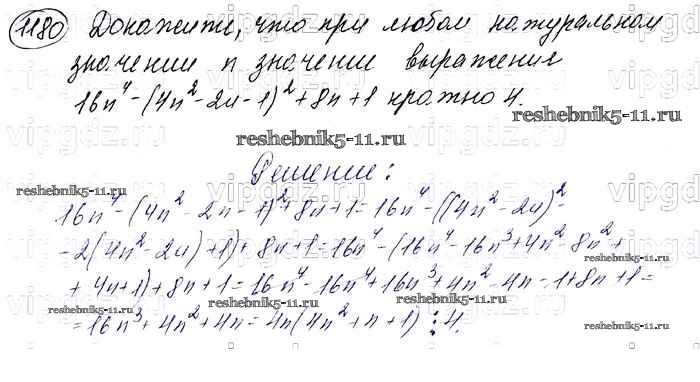 1180 Докажите, что при любом натуральном
значении n значение выражения
16n⁴-(4n²-2n-1)²+8n+1 кратно 4.
reshebnik5-11.ru
Решение:
reshebnik5-11.ru
16n⁴-(4n²-2n-1)²+8n+1=16n⁴-((4n²-2n)²-
-2(4n²-2n)+1)+8n+1=16n⁴-(16n⁴-16n³+4n²-8n²+
+4n+1)+8n+1=16n⁴-16n⁴+16n³+4n²-4n-1+8n+1=
=16n³+4n²+4n=4n(4n²+n+1)⋮4.
reshebnik5-11.ru
reshebnik5-11.ru
reshebnik5-11.ru
vipgdz.ru